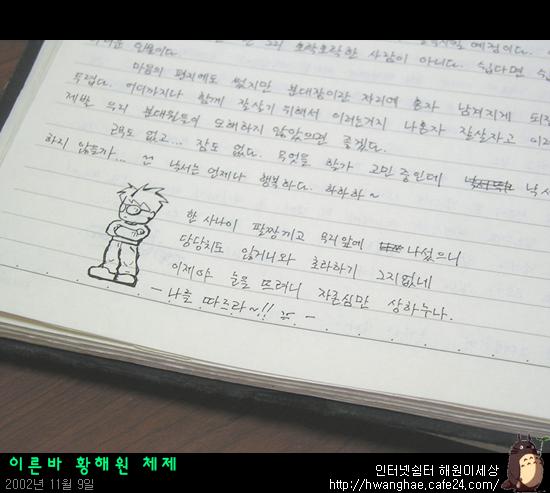 한 그리 호락호락한 사람이 아니다. 쉽다면 쉽
마음의 편지에도 썼지만 분대장이란 자리에 혼자 남겨지게
두렵다. 어디까지나 함께 잘살기 위해서 이러는거지 나혼자 잘살자고
제발 우리 분대원들이 오해하지 않았으면 좋겠다.
근무도 없고... 잠도 없다. 무엇을 할까 고민 중인데
하지 않을까... 낙서는 언제나 행복하다. 하하하~
한 사나이 팔짱끼고 유리앞에 나섰으니
당당치도 않거니와 초라하기 그지없네
이제야 눈을 뜨려니 자존심만 상하누나.
- 나를 따르라~!! -
이른바 황해원 체제
2002년 11월 9일
인터넷쉼터 해원미세상
http://hwanghae.cafe24.com/